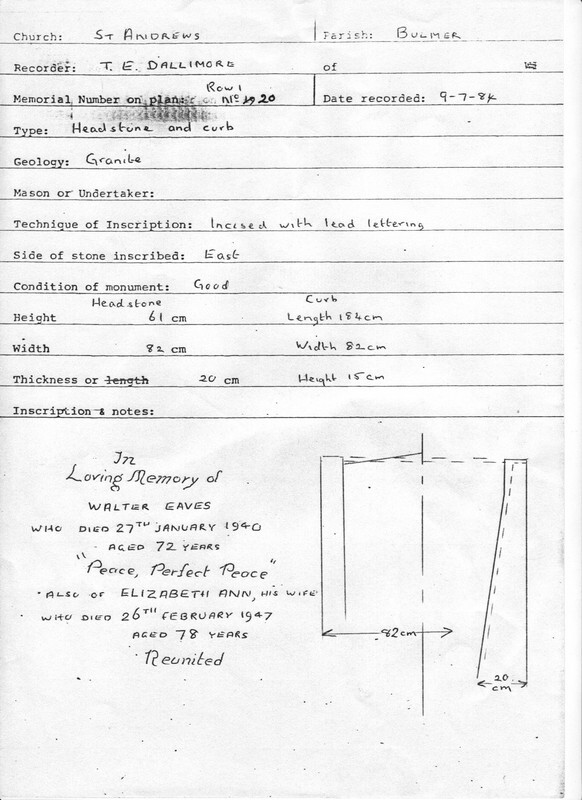 Church: ST ANDREWS Parish: BULMER
Recorder: T. E. DALLIMORE of
Row 1
Memorial Number on plan: No 20 Date recorded: 9-7-84
Type: Headstone and curb
Geology: Granite
Mason or Undertaker:
Technique of Inscription: Incised with lead lettering
Side of stone inscribed: East
Condition of monument: Good
Headstone Curb
Height 61 cm Length 184cm
Width 82 cm Width 82cm
Thickness or length 20 cm Height 15cm
Inscription & notes:
In
Loving Memory of
WALTER EAVES
WHO DIED 27TH JANUARY 1940
AGED 72 YEARS
"Peace, Perfect Peace"
ALSO OF ELIZABETH ANN, HIS WIFE
WHO DIED 26TH FEBRUARY 1947
AGED 78 YEARS
Reunited
82cm
20
cm